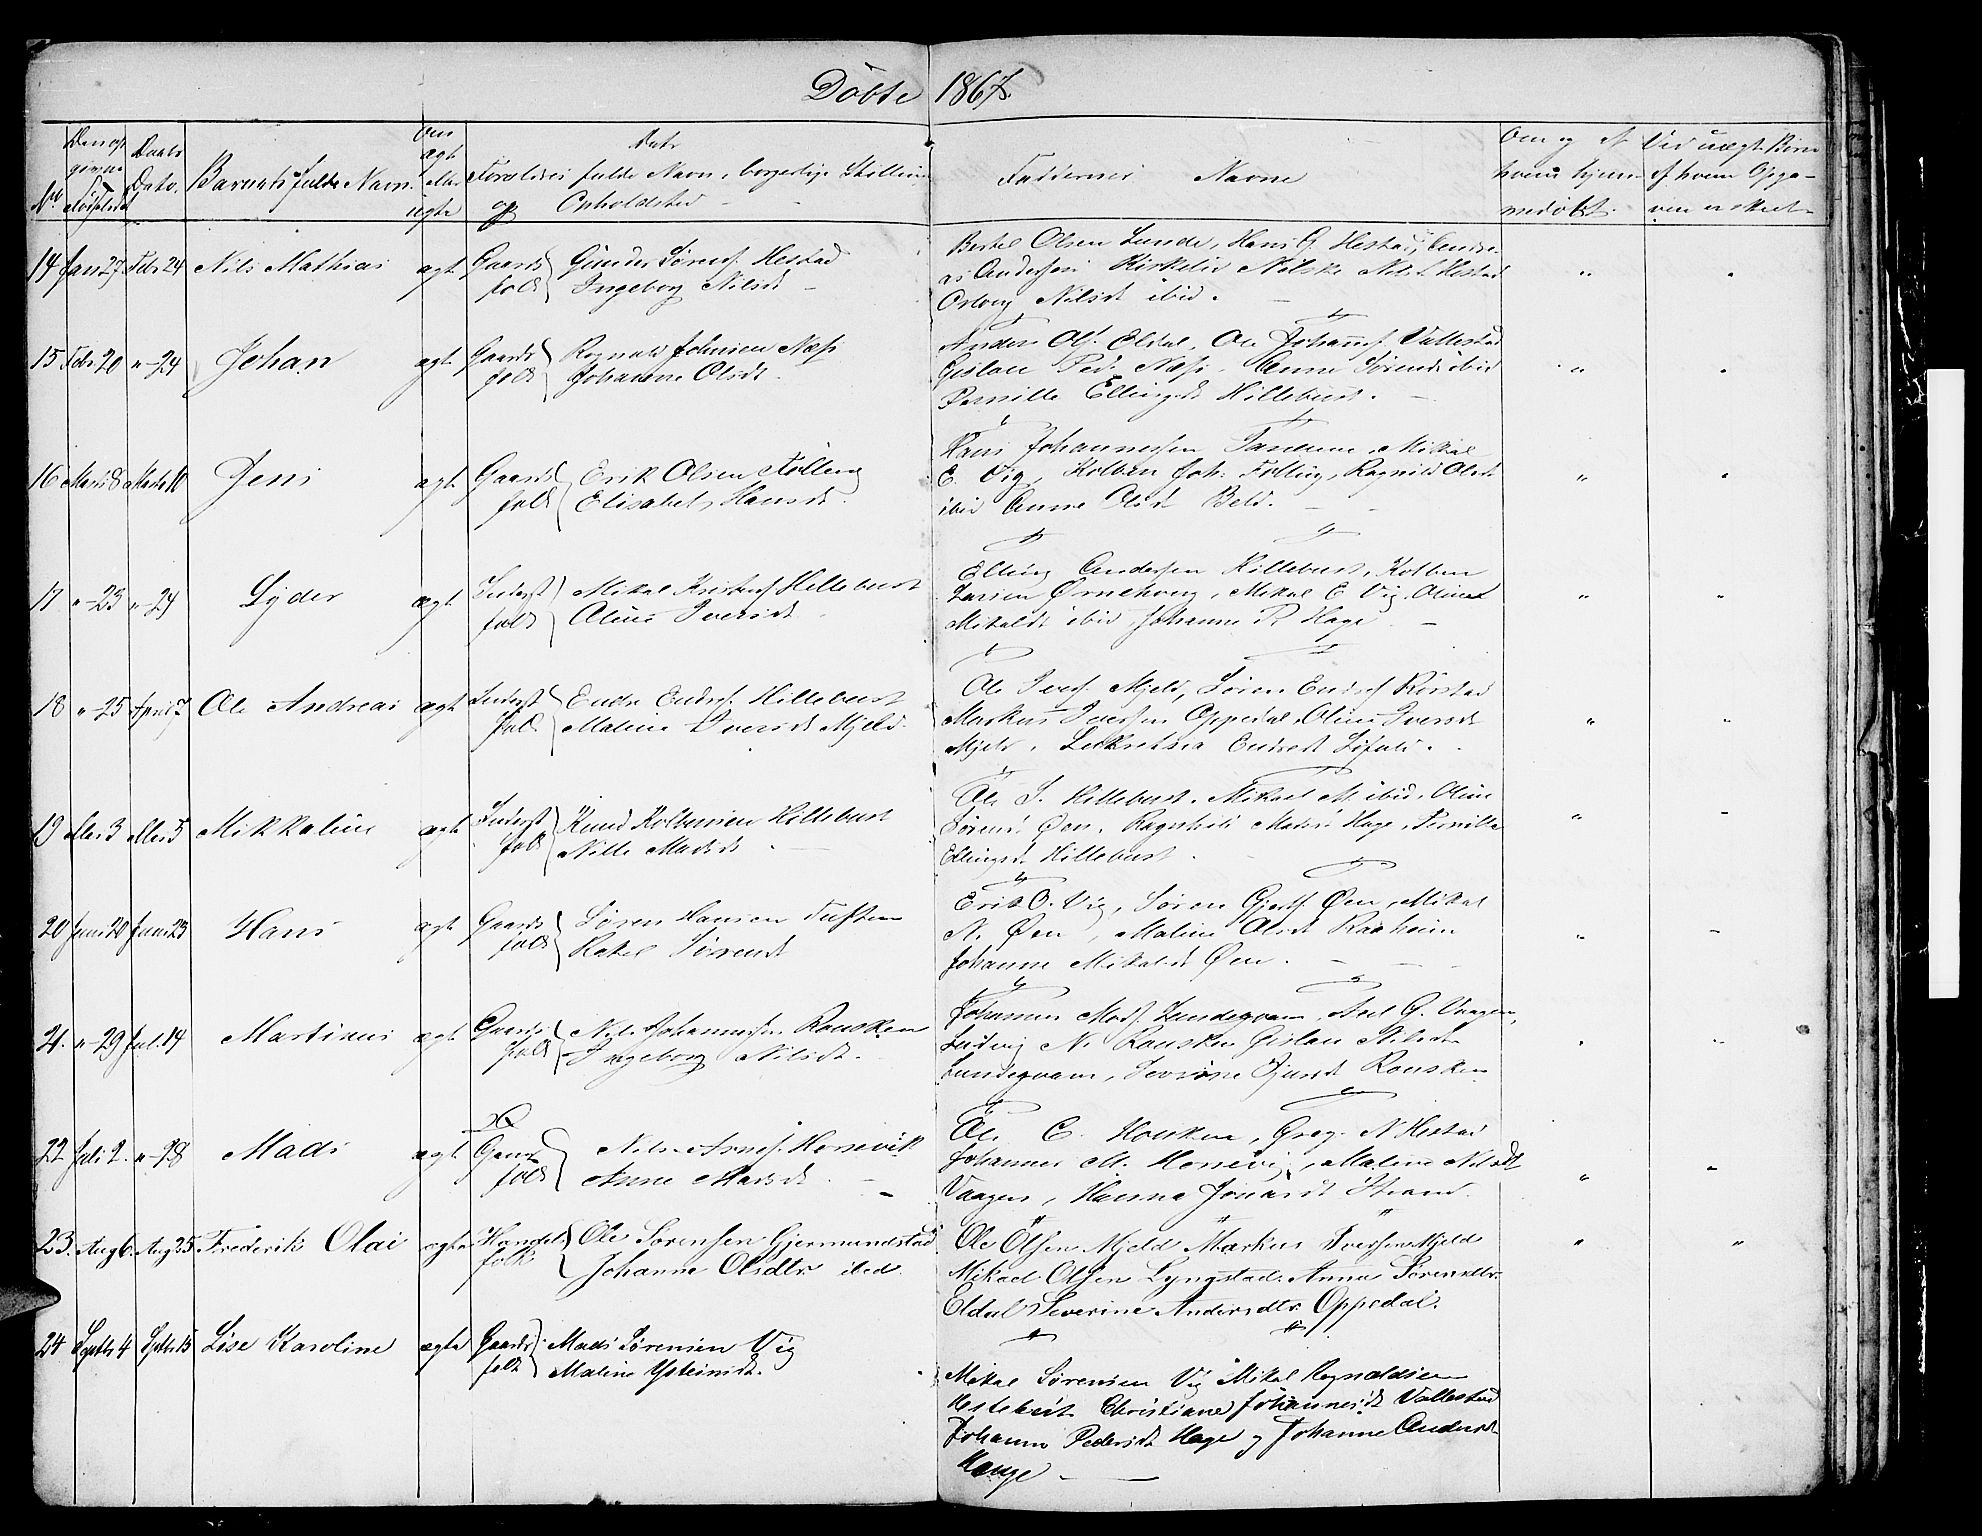 Döbte 1867.
No
Den op
givne
Fødselsdat
Daabs
Dato.
Barnets fulde Navn.
Om
ægt
eller
uægte
Dets
Forældres fulde Navn, borgerlige Stilling
og Opholdsted
Faddernes Navne
Om og af
hvem hjem
medöbt.
Ved uægt. Börn
af hvem Opga-
ven er skeet
14 Jan 27 Febr 24 Nils Mathias ægt. Gaards Gunder Sørens. Hestad
folk Ingeborg Nilsdt
Bertel Olsen Lunde, Hans G. Hestad, Andre-
as Andersen Kirkelid Nilske Nils. Hestad
Nilsdt ibid.
15 Febr 20 "-24 Johan ægt. Gaards Rognald Johnsen Næss
folk Johanne Olsdt.
Anders Ols. Eldal, Ole Johans. Vallestad
Gislau Ped. Næss. Anne Sørensd ibid
Pernille Ellingsdt Hillebust.
16 Marts 8 Marts 10 Jens ægt. Gaards Erik Olsen Følling
folk Elisabet Hansdt.
Hans Johannessen Mikal
E. Vig, Kolben Joh. Følling, Ragnild Olsdt
ibid Anne Olsdt Beld.
17 "-23 "-24 Lyder ægt. Inderst Mikal Kristens Hillebust
folk Oline Iversdt.
Elling Anderssen Hillebust, Kolben
Larsen Ørnehoug, Mikal E. Vig. Oline
Mikalsdt ibid Johanne R Hage
18 "-25 April 7 Ole Andreas ægt. Inderst Endre Endres. Hillebust
folk Maline Iversdt Mjeld.
Ole Ivers. Mjeld, Søren Endres Rørstad
Markus Iverssen Oppedal, Oline Iversdt
Mjeld. Lukretsia Endresdt
19 Mai 3 Mai 5 Mikkaline ægt. Inderst Knud Kolbensen Hillebust
folk Nille Madsdt.
Ole S. Hillebust. Mikael M. ibid. Oline
Sørensd. Øen. Ragnhild Madsd. Hage. Pernille
Ellingsdt Hillebust.
20 Juni 20 Juni 23 Hans ægt. Gaards Søren Hansen Tuften
folk Rakel Sørensdt
Erik O. Vig, Søren Gjerts Øen, Mikal
N. Øen, Maline Olsdt Raaheim
Johanne Mikalsdt Øen.
21. "-29 Juli 14 Martinus ægt. Gaards Nils Johannessen Rausken
folk Ingeborg Nilsdt.
Johannes Mads. Lundeqvam, Axel G. Vaagen,
Ludvig N. Rausken Gislau Nilsdt
Lundeqvam, Severine Rausken
22 Juli 2. "-28 Mads ægt Gaard
folk Nils Arnes. Horsevik
Anne Madsdt.
Ole C. Hausken, Greg. N Hestad
Johannes M. Horsevig, Maline Nilsdt
Vaagen, Hanna Jonasdt Strand.
23. Aug 6. Aug 25 Frederik Olai ægte Handels Ole Sørensen Gjermundstad
folk Johanne Olsdtr. ibid.
Ole Olsen Mjeld Markus Iversen Mjeld
Mikael Olsen Lyngstad. Anna Sörensdtr.
Eldal Severine Andersdtr. Oppedal.
24 Septbr 4 Sptbr 15 Løse Karoline ægte Gaards Mads Sørensen Vig
folk Maline Ysteinsdt.
Mikal Sørensen Vig Mikal Rognaldsen
Hestebeit Christiane Johannesdt Vallestad
Johanne Pedersdt Hage og Johanne Andersdt
Hauge